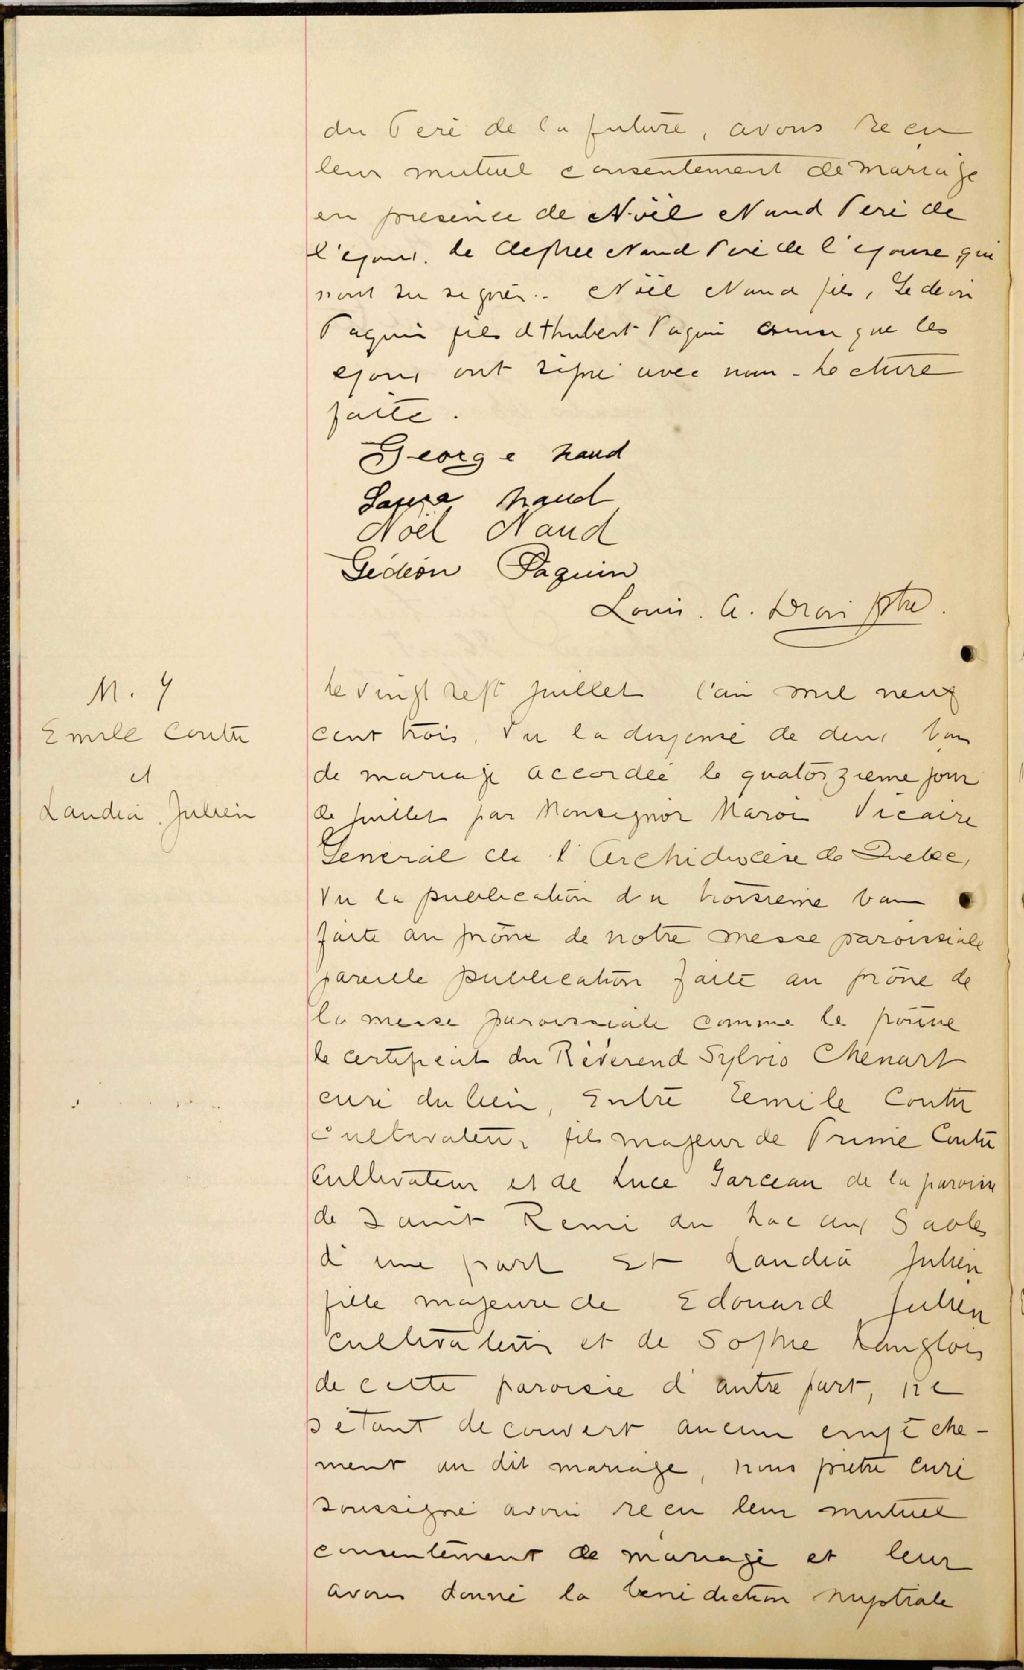 du Peré de la future, avons recu
leur mutuel consentement de mariage
en presence de Noël Naud Peré de
l'epoux. de Naud Peré de l'epouse qui
n'ont su signér.. Nöel Naud fils, Gedeon
Paquin fils d'Hubert Paquin ainsi que les
epoux ont signé avec nous - Lecture
faite.
George Naud
Laura Naud
Noël Naud
Gédéon Paquin
Louis. A. Ptre.
M. 7
Emile Coutu
et
Landia Julien
Le vingt sept Juillet l'an mil neuf
cent trois. Vu la dispense de deux bans
de mariage accordée le quatorzieme jour
de Juillet par Monseignor Marois Vicaire
General de l'Archidiocese de Quebec,
Vu la publication du troisieme ban
faite au prône de notre messe paroissiale
pareille publication faite au prône de
la messe paroissiale comme le
le certificat du Révérend Sylvio Chenart
curé du lieu, Entre Eemile Coutu
cultivateur, fils majeur de Prime Coutu
cultivateur et de Luce Garceau de la paroisse
de Saint Remi du Lac aux Sables
d'une part Et Landia Julien
fille majeure de Edouard Julien
cultivateur et de Sophie Langlois
de cette paroisse d'autre part, ne
s'étant decouvert aucun empêche-
ment au dit mariage, nous prêtre curé
soussigné avons recu leur mutuel
consentement de mariage et leur
avons donné la benediction nuptiale